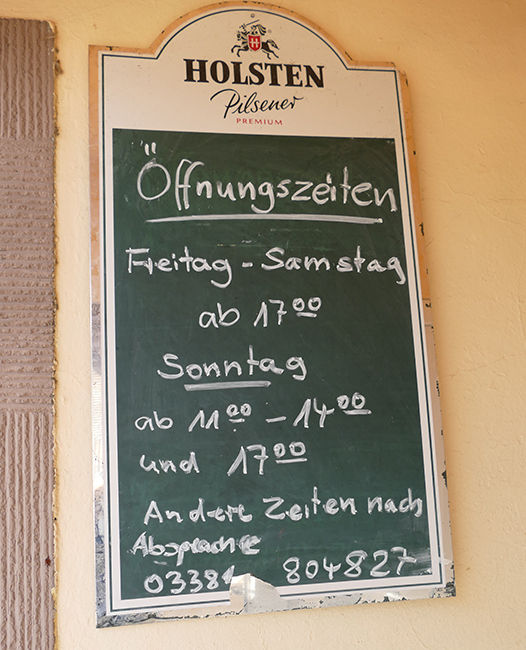 HOLSTEN
Pilsener
PREMIUM
Öffnungszeiten
Freitag - Samstag
ab 17 00
Sonntag
ab 11 00 - 14 00
und 17 00
Andere Zeiten nach
Absprache
03381 804827